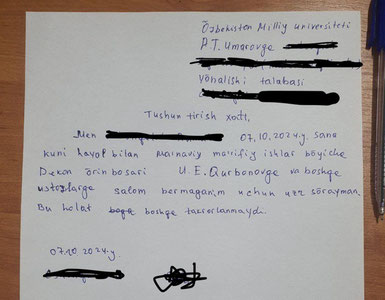 Õzbekiston Milliy universiteti
P.T. Umarovga
Yõnalishi talabasi
Tushun tirish xati,
Men 07.10.2024.y. sana
kuni havol bilan manaviy marifiy ishlar bõyicha
Dekan õrinbosari U.E.Qurbonovga va boshqa
ustozlarga salom bermaganim uchun uzr sõrayman.
Bu holat boshqa takrorlanmaydi.
07.10 2024.y.